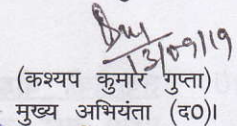 13/09/19
(कश्यप कुमार गुप्ता)
मुख्य अभियंता (द0)।